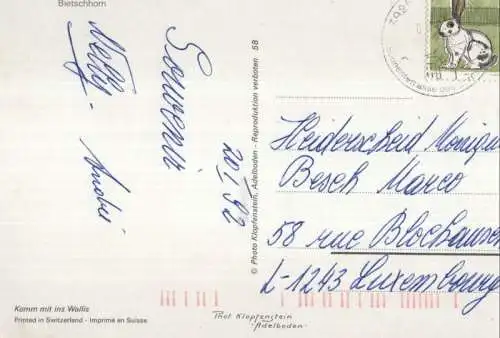 Bietschhorn
Souvenir
Nelly.
André
20/1/92
© Photo Klopfenstein, Adelboden - Reproduktion verboten 58
Heiderscheid Monique
Besch Marco
58 rue Blochausen
L-1243 Luxembourg
Komm mit ins Wallis
Printed in Switzerland - Imprimé en Suisse
Phot Klopfenstein
-Adelboden-